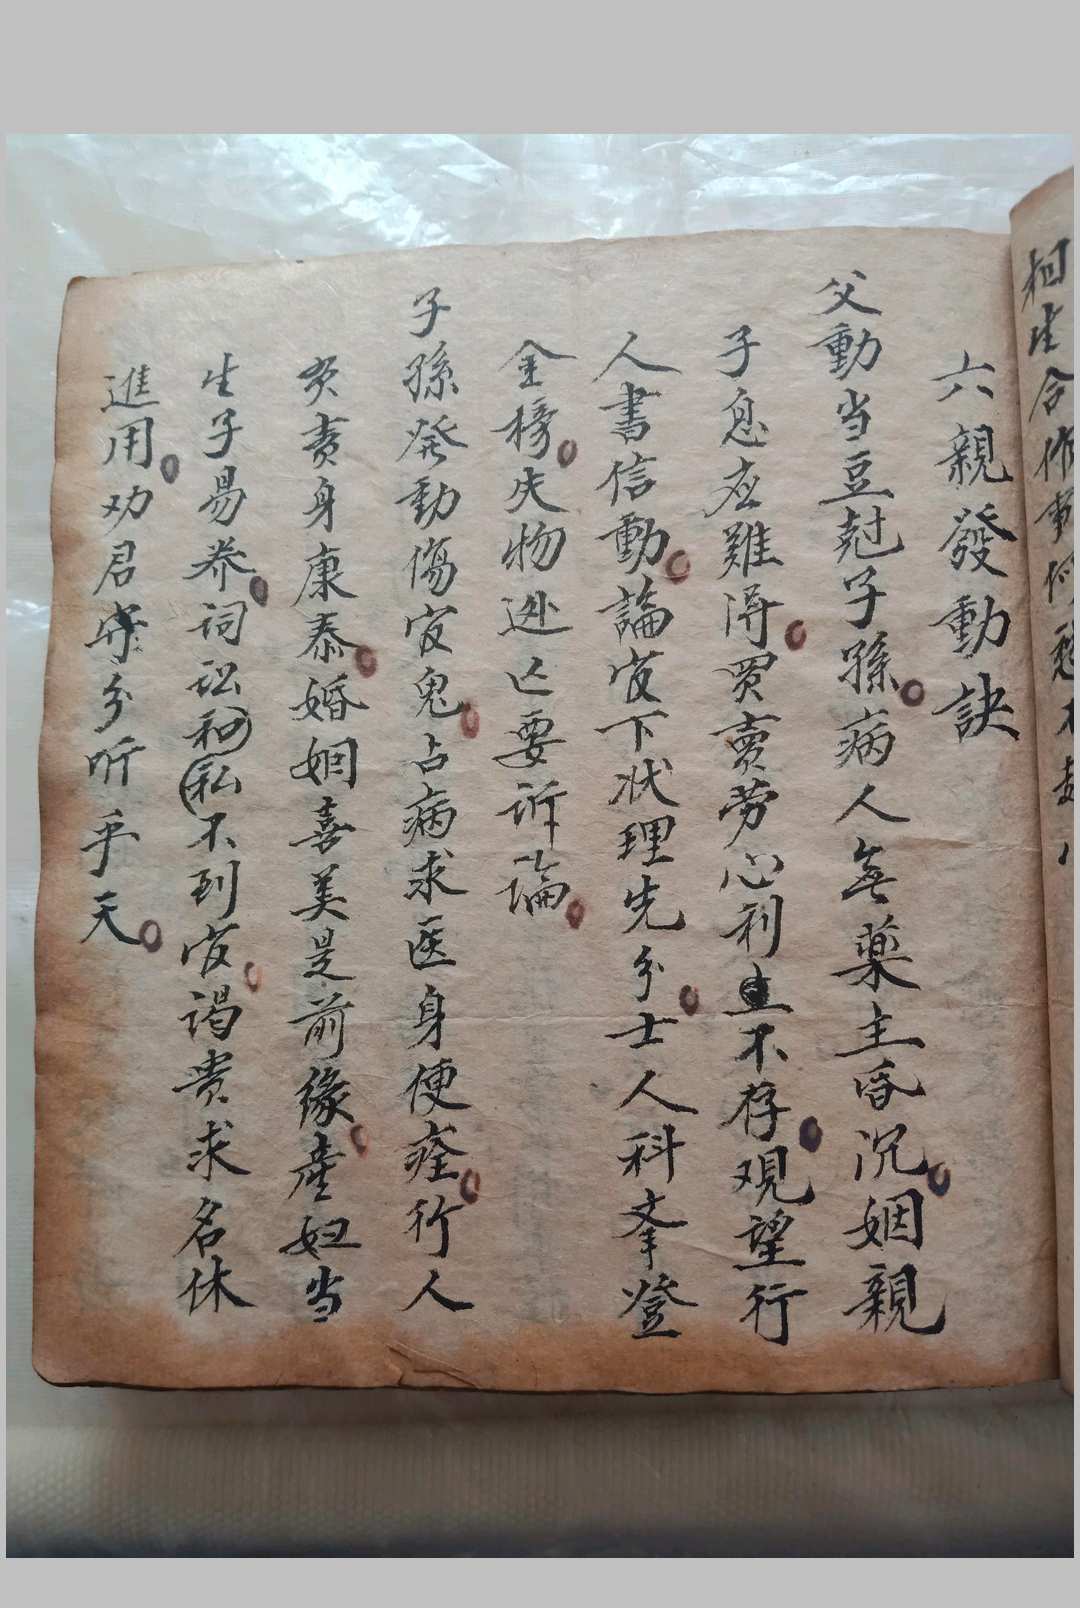 相生合作事
六親發動訣
父動当豆尅子孫病人無藥主昏沉姻親
子息应難得買賣劳心利不存观望行
人書信動論官下状理先分士人科挙登
金榜失物逃亡要诉論
子孫発動傷官鬼占病求医身便痊行人
買賣身康泰婚姻喜美是前缘産妇当
生子易养词讼和私不到官谒贵求名休
進用劝君守分听乎天